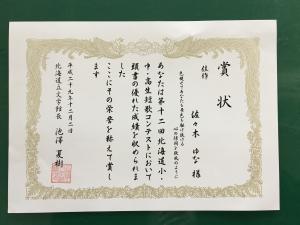 賞状
佳作
佐々木 ゆな 様
あなたは第十二回北海道小・
中・高生短歌コンテストにおいて
頭書の優れた成績を収められま
した
ここにその栄誉を称えて賞し
ます
平成二十九年十二月二日
北海道立文学館長 池澤夏樹